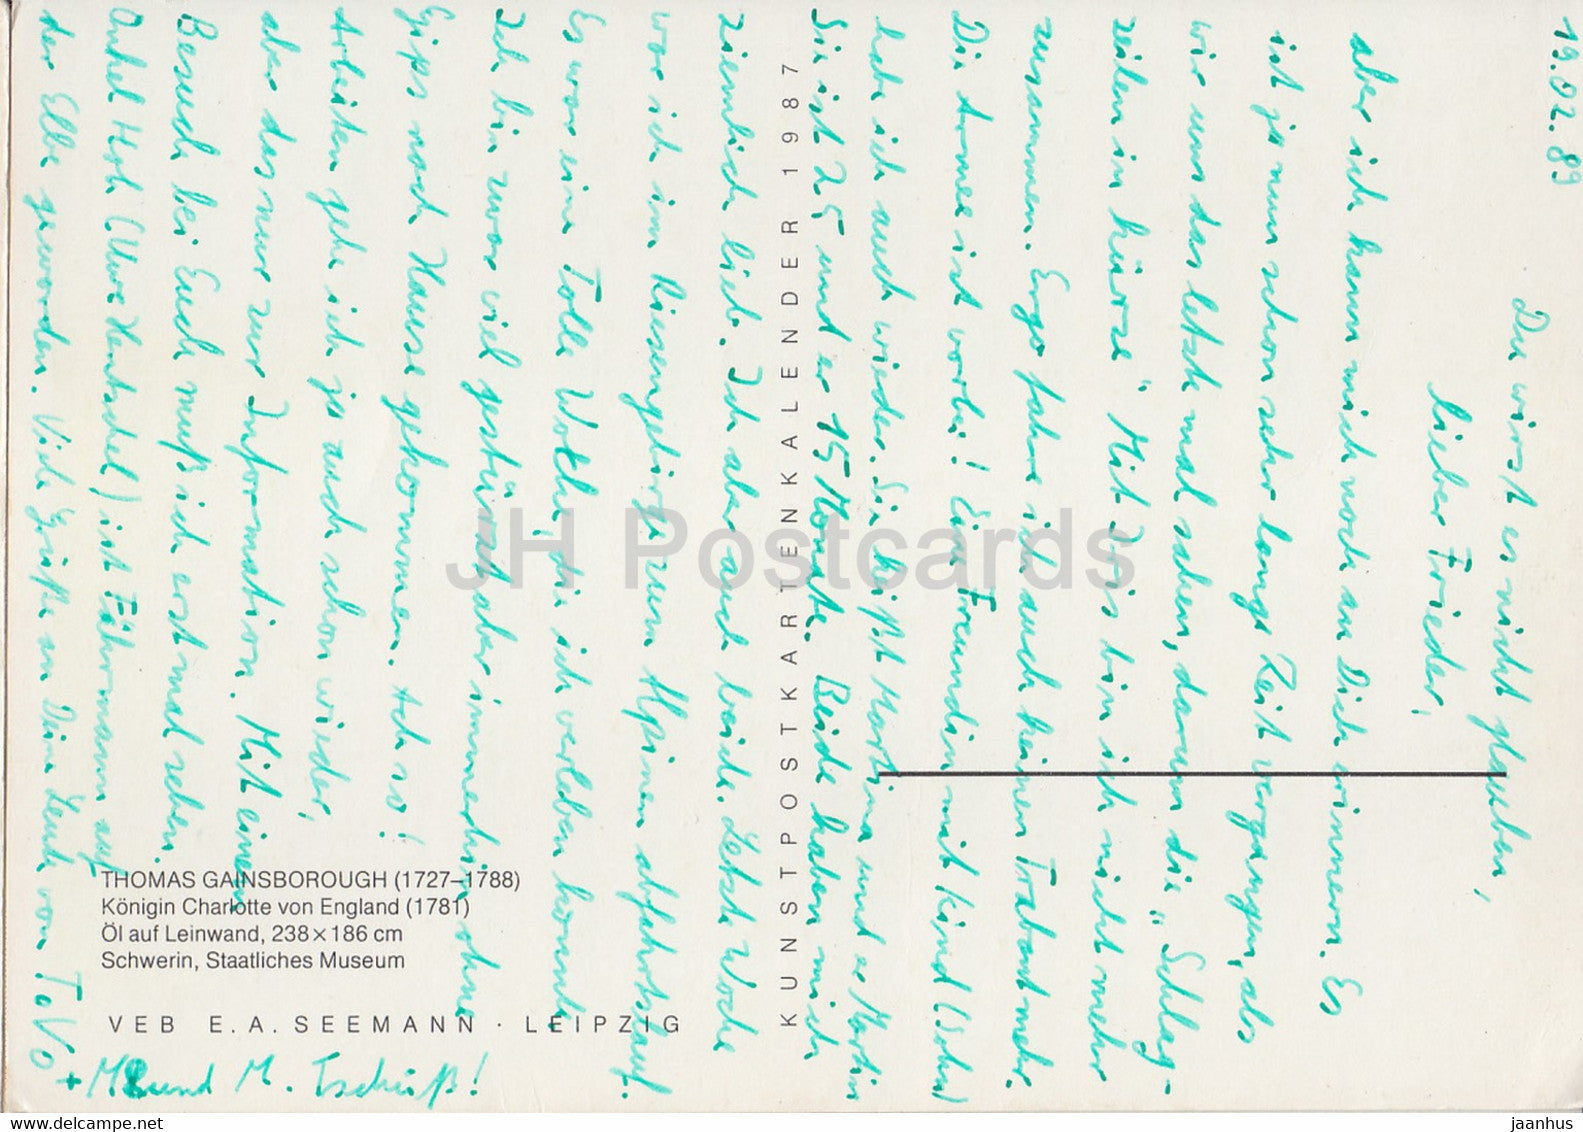 19.02.89
Du wirst es nicht glauben,
lieber Frieder,
aber ich kann mich noch an Dich erinnern. Es
ist ja nun schon sehr lange Zeit vergangen, als
wir uns das letzte mal sahen, darum die „Schlag-
zeilen in kürze" Mit Iris bin ich nicht mehr
zusammen. Ergo fahre ich auch keinen Trabant mehr.
Die Armee ist vorbei! Eine Freundin mit Kind (Sohn)
habe ich auch wieder. Sie heißt Martina und er Martin
Sie ist 25 und er 15 Monate. Beide haben mich
ziemlich lieb. Ich aber auch beide. Letzte Woche
war ich im Riesengebirge zum Alpinen abfahrtslauf.
Es war eine Tolle Woche, die ich verleben konnte
Ich bin zwar viel gestürzt aber immerhin ohne
Gips nach Hause gekommen. Ach so!
Arbeiten gehe ich ja auch schon wieder,
aber das nur zur Information. Mit einem
Besuch bei Euch muß ich erst mal sehen.
Onkel Hosh (Uwe Hentschel) ist Fährmann auf
der Elbe geworden. Viele Grüße an Deine Leute von ToVo
+ M. und M. Tschüß!
KUNSTPOSTKARTENKALENDER 1987
THOMAS GAINSBOROUGH (1727–1788)
Königin Charlotte von England (1781)
Öl auf Leinwand, 238 × 186 cm
Schwerin, Staatliches Museum
VEB E. A. SEEMANN · LEIPZIG
JH Postcards
www.delcampe.net
jaanhus